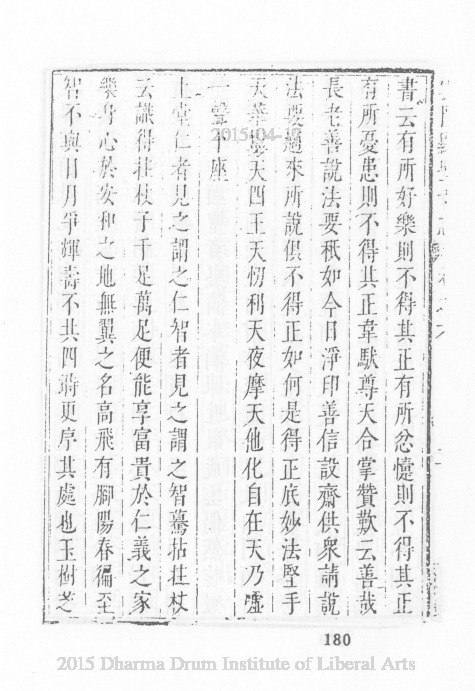 書云有所好樂則不得其正有所忿懥則不得其正
有所憂患則不得其正韋䭾尊天合掌贊歎云善哉
長老善說法要秖如今日淨印善信設齋供衆請說
法要適來所說俱不得正如何是得正底妙法堅手
天華鬘天四王天忉利天夜摩天他化自在天乃噓
一聲下座
上堂仁者見之謂之仁智者見之謂之智驀拈拄杖
云識得拄杖子千足萬足便能享富貴於仁義之家
樂身心於安和之地無翼之名高飛有腳陽春徧至
智不與日月爭輝壽不共四時更序其處也玉樹芝
2015-04-17
180
2015 Dharma Drum Institute of Liberal Arts